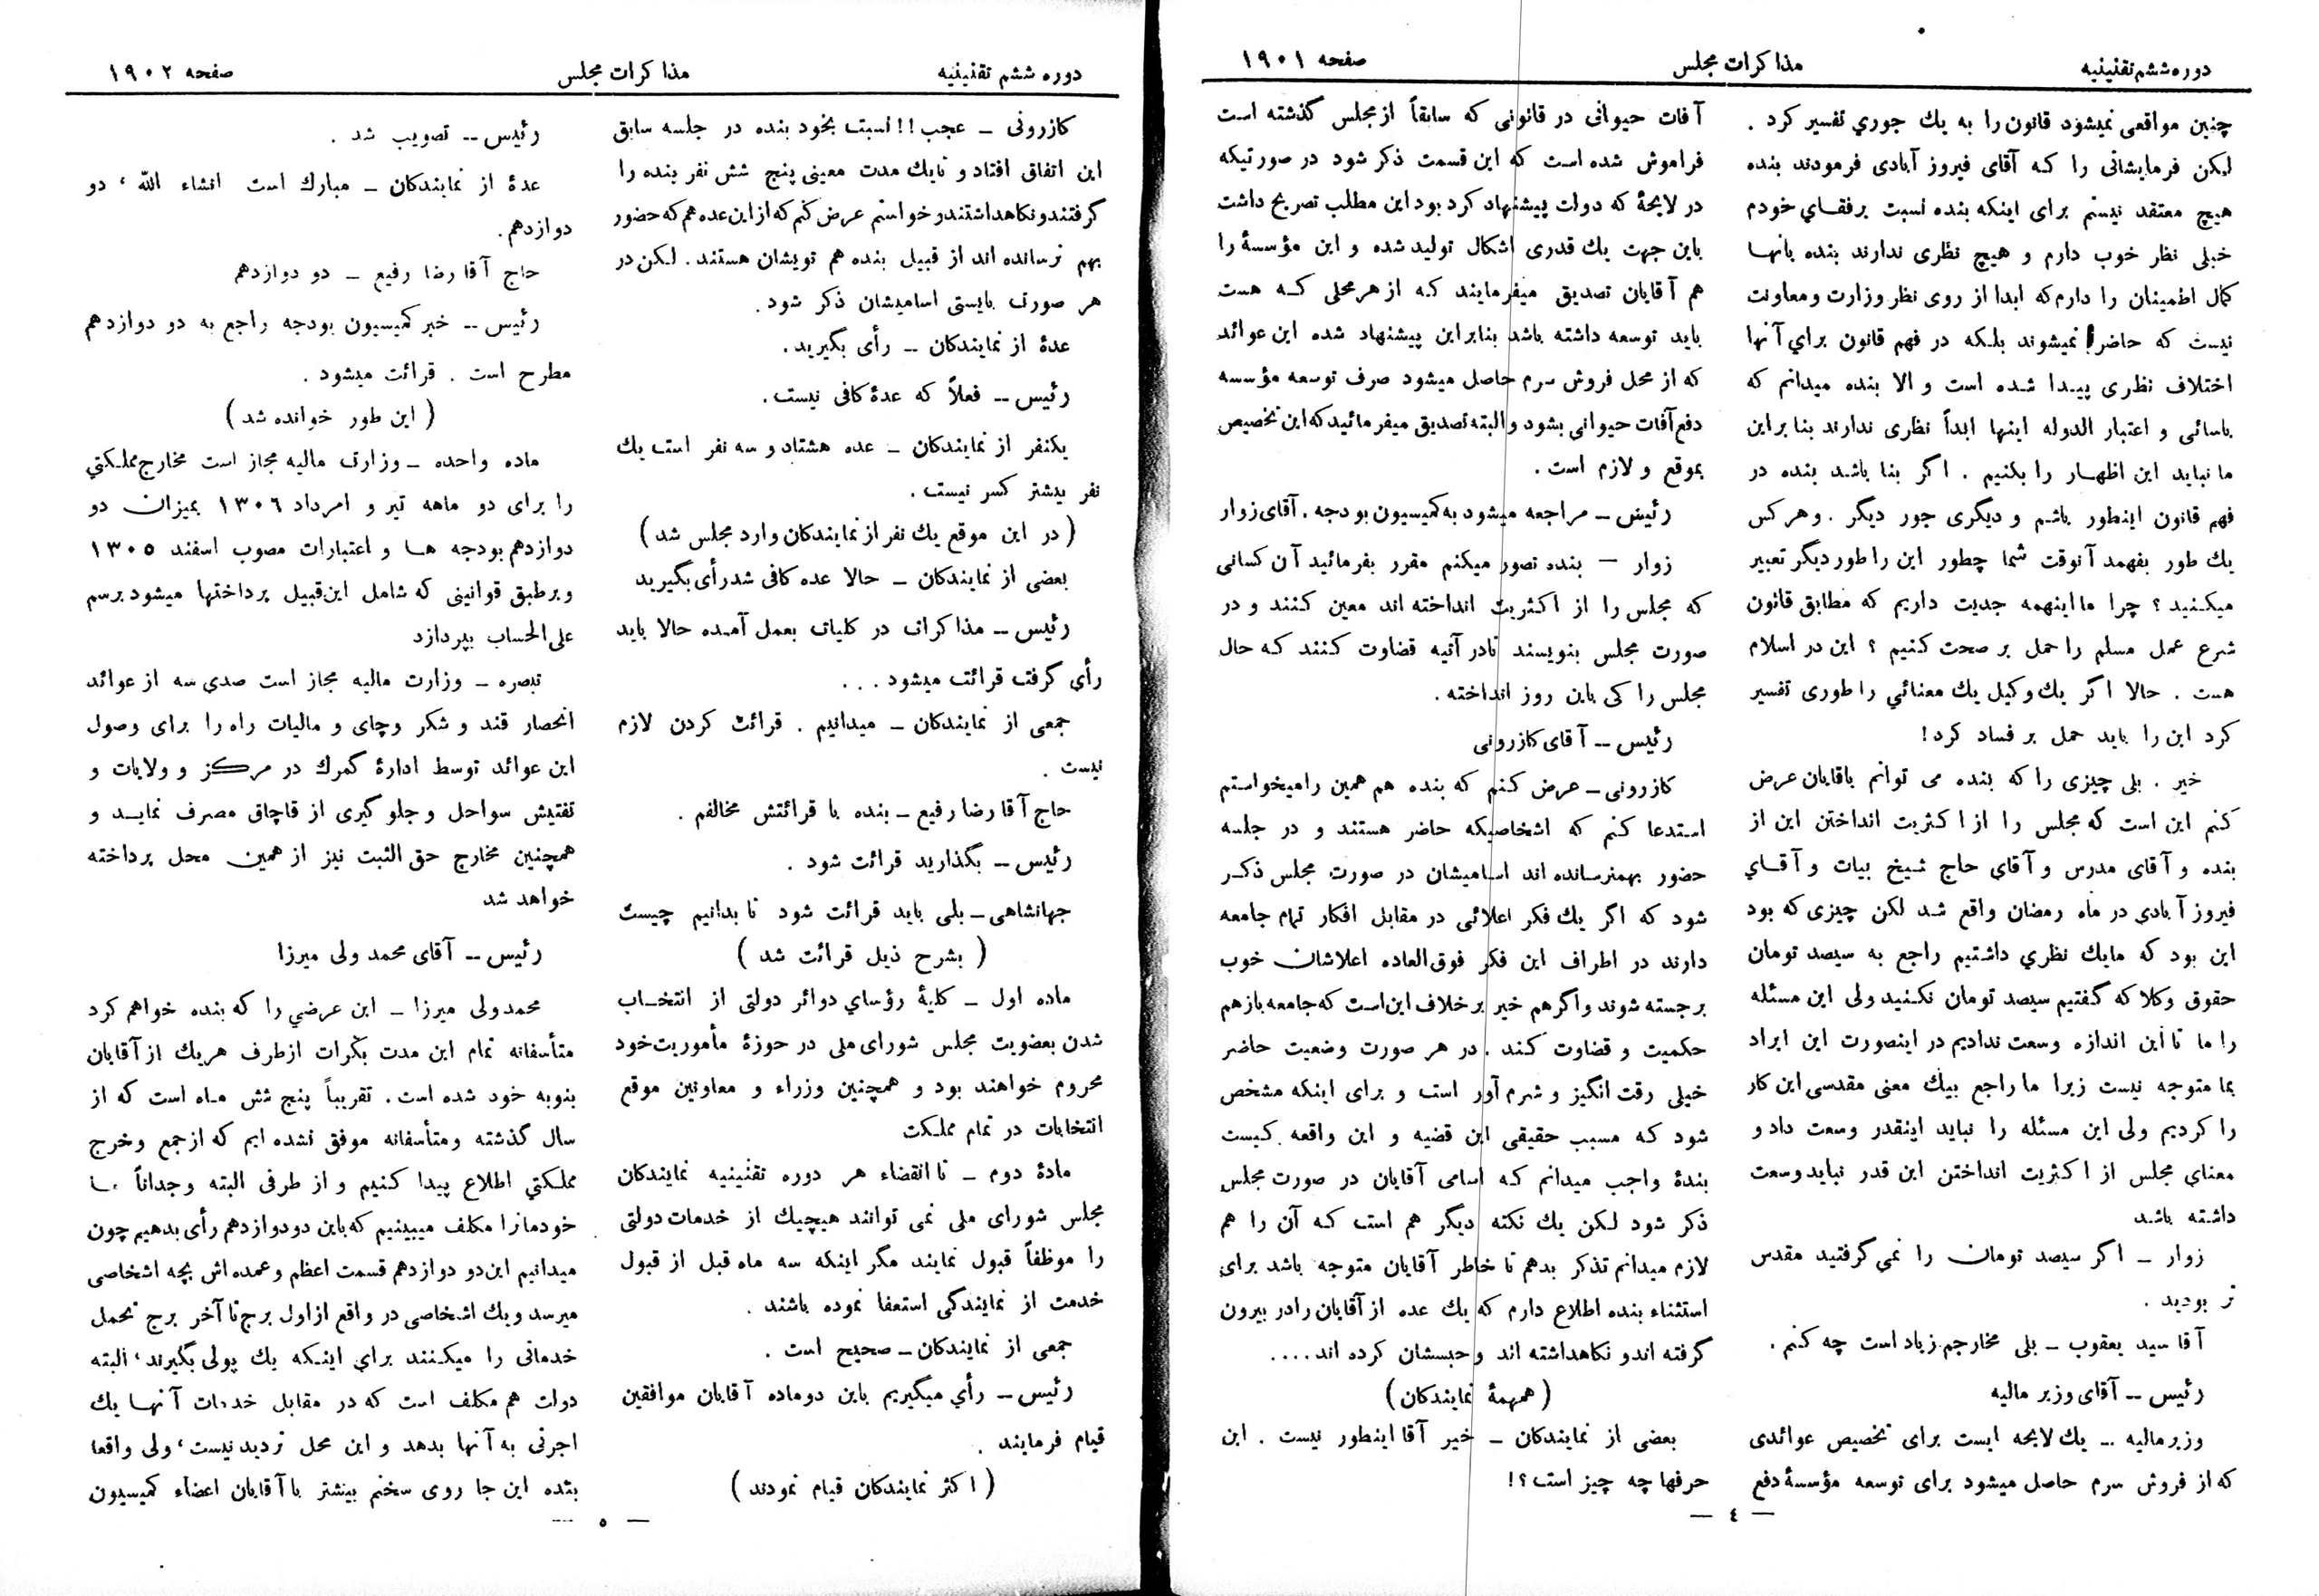 دوره ششم تقنینیه
مذاکرات مجلس
صفحه ۱۹۰۱
چنین مواقعی نمیشود قانون را به یك جوري تفسیر کرد .
لیکن فرمایشاتی را که آقای فیروز آبادی فرمودند بنده
هیچ معتقد نیستم برای اینکه بنده نسبت برفقای خودم
خیلی نظر خوب دارم و هیچ نظری ندارند بنده بآنها
کمال اطمینان را دارم که ابدا از روی نظر وزارت و معاونت
نیست که حاضر نمیشوند بلکه در فهم قانون براي آنها
اختلاف نظری پیدا شده است و الا بنده میدانم که
یاسائی و اعتبار الدوله اینها ابداً نظری ندارند بنا براین
ما نباید این اظهار را بکنیم . اگر بنا باشد بنده در
فهم قانون اینطور باشم و دیگری جور دیگر . و هر کس
یك طور بفهمد آنوقت شما چطور این را طور دیگر تعبیر
میکنید ؟ چرا ما اینهمه جدیت داریم که مطابق قانون
شرع عمل مسلم را حمل بر صحت کنیم ؟ این در اسلام
هست . حالا اگر یك وکیل یك معنائي را طوری تفسیر
کرد این را باید حمل بر فساد کرد !
خیر . بلی چیزی را که بنده می توانم باقایان عرض
کنم این است که مجلس را از اکثریت انداختن این از
بنده و آقای مدرس و آقاي حاج شیخ بیات و آقاي
فیروز آبادي در ماه رمضان واقع شد لکن چیزی که بود
این بود که ما یك نظري داشتیم راجع به سیصد تومان
حقوق وکلا که گفتیم سیصد تومان نکنید ولی این مسئله
را ما تا این اندازه وسعت ندادیم در اینصورت این ایراد
بما متوجه نیست زیرا ما راجع بیك معنی مقدسی این کار
را کردیم ولی این مسئله را نباید اینقدر وسعت داد و
معناي مجلس از اکثریت انداختن این قدر نباید وسعت
داشته باشد
زوار ــ اگر سیصد تومان را نمي گرفتید مقدس
تر بودید .
آقا سید یعقوب ــ بلی مخارجم زیاد است چه کنم .
رئیس ــ آقای وزیر مالیه
وزیر مالیه ــ یك لایحه ایست برای تخصیص عوائدی
که از فروش سرم حاصل میشود برای توسعه مؤسسۀ دفع
آفات حیوانی در قانونی که سابقاً از مجلس گذشته است
فراموش شده است که این قسمت ذکر شود در صورتیکه
در لایحۀ که دولت پیشنهاد کرد بود این مطلب تصریح داشت
باین جهت یك قدری اشکال تولید شده و این مؤسسۀ را
هم آقایان تصدیق میفرمایند که از هر محلی که هست
باید توسعه داشته باشد بنابراین پیشنهاد شده این عوائد
که از محل فروش سرم حاصل میشود صرف توسعه مؤسسه
دفع آفات حیوانی بشود و البته تصدیق میفرمائید که این تخصیص
بموقع و لازم است .
رئیس ــ مراجعه میشود به کمیسیون بودجه . آقای زوار
زوار ــ بنده تصور میکنم مقرر بفرمائید آن کسانی
که مجلس را از اکثریت انداخته اند معین کنند و در
صورت مجلس بنویسند تا در آتیه قضاوت کنند که حال
مجلس را کی باین روز انداخته .
رئیس ــ آقای کازرونی
کازرونی ــ عرض کنم که بنده هم همین را میخواستم
استدعا کنم که اشخاصیکه حاضر هستند و در جلسه
حضور بهمنرسانده اند اسامیشان در صورت مجلس ذکر
شود که اگر یك فکر اعلائی در مقابل افکار تمام جامعه
دارند در اطراف این فکر فوق العاده اعلاشان خوب
برجسته شوند و اگر هم خیر بر خلاف این است که جامعه باز هم
حکمیت و قضاوت کند . در هر صورت وضعیت حاضر
خیلی رقت انگیز و شرم آور است و برای اینکه مشخص
شود که مسبب حقیقی این قضیه و این واقعه کیست
بندۀ واجب میدانم که اسامی آقایان در صورت مجلس
ذکر شود لکن یك نکته دیگر هم است که آن را هم
لازم میدانم تذکر بدهم تا خاطر آقایان متوجه باشد برای
استثناء بنده اطلاع دارم که یك عده از آقایان را در بیرون
گرفته اند و نگاهداشته اند و حبسشان کرده اند ....
( همهمۀ نمایندکان )
بعضی از نمایندکان ــ خیر آقا اینطور نیست . این
حرفها چه چیز است ؟!
— ٤ —
دوره ششم تقنینیه
مذاکرات مجلس
صفحه ۱۹۰۲
کازرونی ــ عجب !! نسبت بخود بنده در جلسه سابق
این اتفاق افتاد و تا یك مدت معینی پنج شش نفر بنده را
گرفتند و نکاهداشتند و خواستم عرض کنم که از این عده هم که حضور
بهم نرسانده اند از قبیل بنده هم تویشان هستند . لکن در
هر صورت بایستی اسامیشان ذکر شود .
عدۀ از نمایندکان ــ رأی بگیرید .
رئیس ــ فعلاً که عدۀ کافی نیست .
یکنفر از نمایندکان ــ عده هشتاد و سه نفر است یك
نفر بیشتر کسر نیست .
( در این موقع یك نفر از نمایندکان وارد مجلس شد )
بعضی از نمایندکان ــ حالا عده کافی شد رأی بگیرید
رئیس ــ مذاکرات در کلیات بعمل آمده حالا باید
رأی گرفت قرائت میشود ...
جمعی از نمایندکان ــ میدانیم . قرائت کردن لازم
نیست .
حاج آقا رضا رفیع ــ بنده با قرائتش مخالفم .
رئیس ــ بگذارید قرائت شود .
جهانشاهی ــ بلی باید قرائت شود تا بدانیم چیست
( بشرح ذیل قرائت شد )
ماده اول ــ کلیۀ رؤساي دوائر دولتی از انتخاب
شدن بعضویت مجلس شورای ملی در حوزۀ مأموریت خود
محروم خواهند بود و همچنین وزراء و معاونین موقع
انتخابات در تمام مملکت
مادۀ دوم ــ تا انقضاء هر دوره تقنینیه نمایندکان
مجلس شورای ملی نمی توانند هیچیك از خدمات دولتی
را موظفاً قبول نمایند مگر اینکه سه ماه قبل از قبول
خدمت از نمایندگی استعفا نموده باشند .
جمعی از نمایندکان ــ صحیح است .
رئیس ــ رأي میگیریم باین دو ماده آقایان موافقین
قیام فرمایند .
( اکثر نمایندکان قیام نمودند )
رئیس ــ تصویب شد .
عدۀ از نمایندکان ــ مبارك است انشاء الله ، دو
دوازدهم .
حاج آقا رضا رفیع ــ دو دوازدهم
رئیس ــ خبر کمیسیون بودجه راجع به دو دوازدهم
مطرح است . قرائت میشود .
( این طور خوانده شد )
ماده واحده ــ وزارت مالیه مجاز است مخارج مملکتي
را برای دو ماهه تیر و امرداد ۱۳۰٦ بمیزان دو
دوازدهم بودجه ها و اعتبارات مصوب اسفند ۱۳۰۵
و بر طبق قوانینی که شامل این قبیل پرداختها میشود برسم
علی الحساب بپردازد
تبصره ــ وزارت مالیه مجاز است صدی سه از عوائد
انحصار قند و شکر و چای و مالیات راه را برای وصول
این عوائد توسط ادارۀ گمرك در مرکز و ولایات و
تفتیش سواحل و جلو گیری از قاچاق مصرف نماید و
همچنین مخارج حق الثبت نیز از همین محل پرداخته
خواهد شد
رئیس ــ آقای محمد ولی میرزا
محمد ولی میرزا ــ این عرضي را که بنده خواهم کرد
متأسفانه تمام این مدت بکرات از طرف هر یك از آقایان
بنوبه خود شده است . تقریباً پنج شش ماه است که از
سال گذشته و متأسفانه موفق نشده ایم که از جمع و خرج
مملکتي اطلاع پیدا کنیم و از طرفی البته وجداناً ما
خودمانرا مکلف میبینیم که باین دو دوازدهم رأی بدهیم چون
میدانیم این دو دوازدهم قسمت اعظم و عمده اش بچه اشخاصی
میرسد و یك اشخاصی در واقع از اول برج تا آخر برج تحمل
خدماتی را میکنند براي اینکه یك پولی بگیرند ، البته
دولت هم مکلف است که در مقابل خدمات آنها یك
اجرتی به آنها بدهد و این محل تردید نیست ، ولی واقعا
بنده این جا روی سخنم بیشتر با آقایان اعضاء کمیسیون
— ٥ —